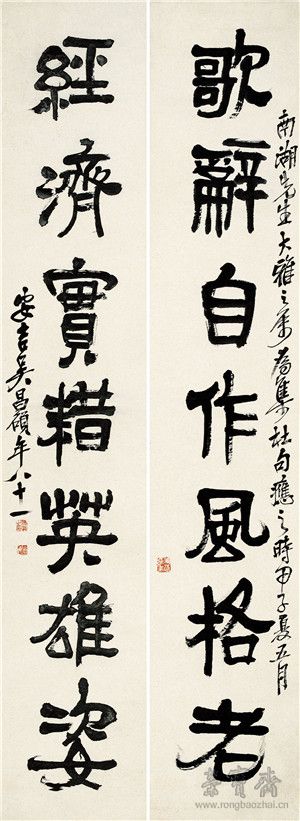 南湖先生大雅之屬為集杜句應之時甲子夏五月
歌辭自作風格老
經濟實藉英雄姿
安吉吳昌碩年八十一
榮寶齋
www.rongbaozhai.cn